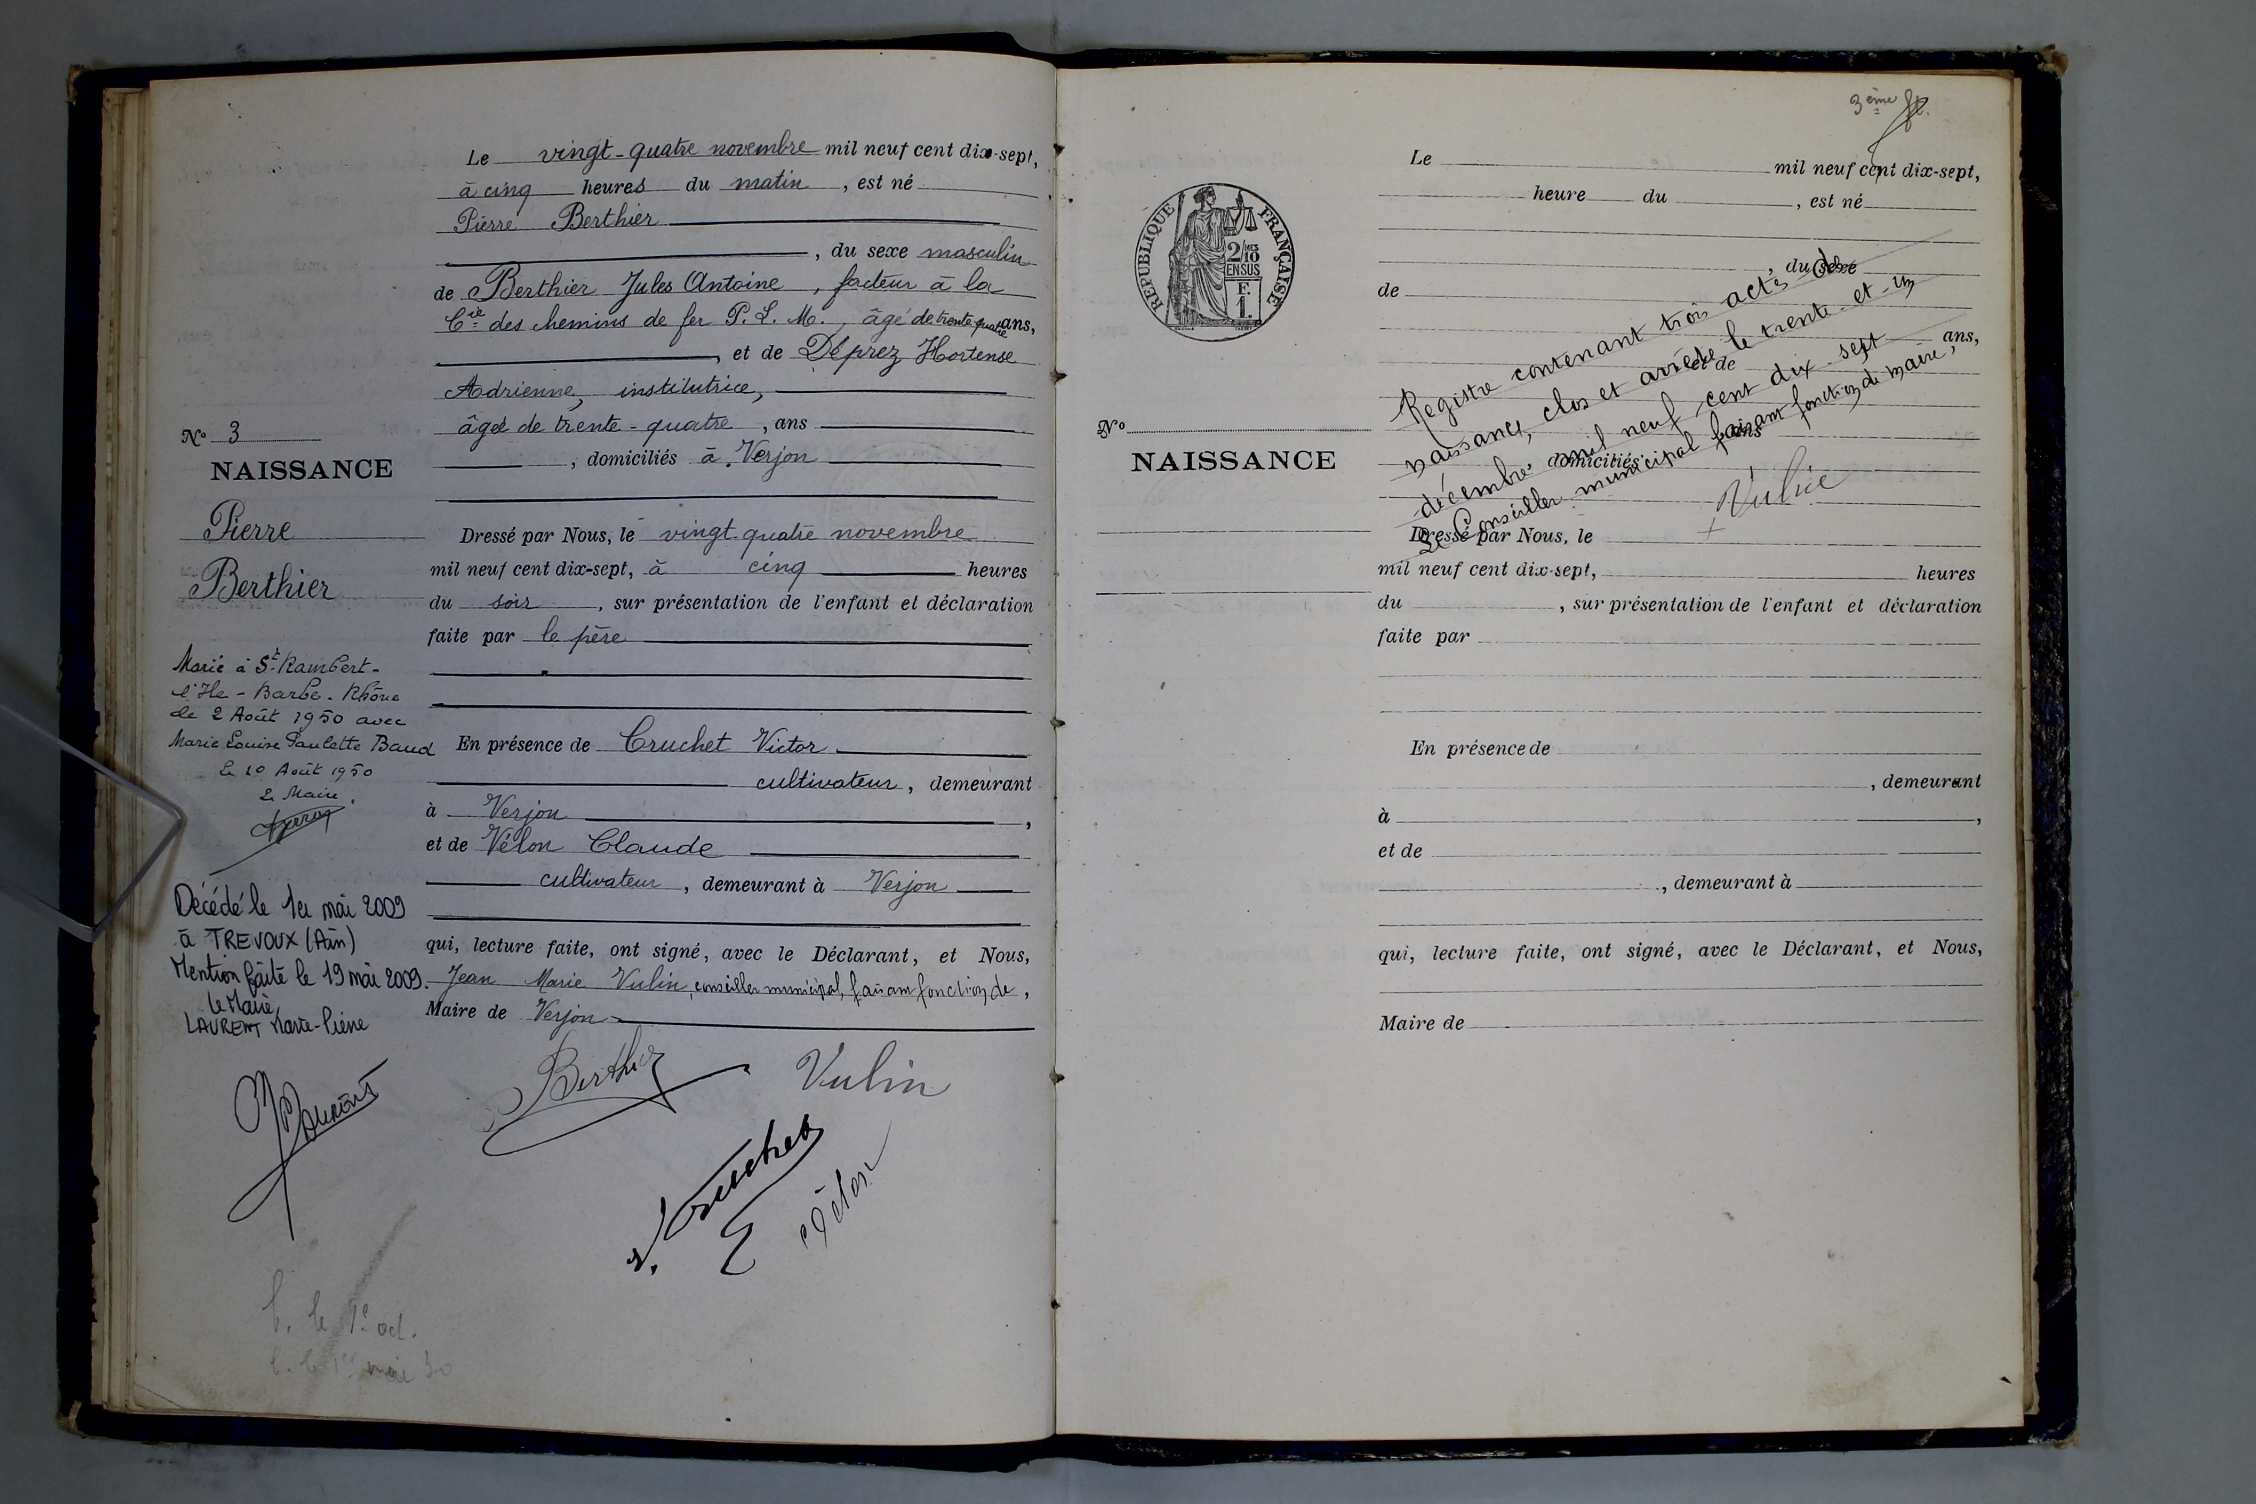 Le vingt-quatre novembre mil neuf cent dix-sept,
à cinq heures du matin, est né
Pierre Berthier
, du sexe masculin
de Berthier Jules Antoine, facteur à la
Cie des chemins de fer P. L. M., âgé de trente quatre ans,
, et de Déprez Hortense
Adrienne, institutrice,
âgée de trente-quatre, ans
, domiciliés à Verjon
No 3
NAISSANCE
Pierre
Berthier
Dressé par Nous, le vingt-quatre novembre
mil neuf cent dix-sept, à cinq heures
du soir, sur présentation de l'enfant et déclaration
faite par le père
En présence de Cruchet Victor
cultivateur, demeurant
à Verjon,
et de Vélon Claude
cultivateur, demeurant à Verjon
qui, lecture faite, ont signé, avec le Déclarant, et Nous,
Jean Marie Vulin, conseiller municipal, faisant fonction de,
Maire de Verjon
Marié à St Rambert-
l'Ile-Barbe. Rhône
le 2 Août 1950 avec
Marie Louise Paulette Baud
Le 10 Août 1950
Le Maire.
Décédé le 1er mai 2009
à TREVOUX (Ain)
Mention faite le 19 mai 2009.
Le Maire,
LAURENT Marie-Pierre
Berthier
Vulin
V. Cruchet
Vélon
MPLaurent
le 1er oct.
le 1er mai 30
3ème ft.
Le mil neuf cent dix-sept,
heure du , est né
, du sexe
de
ans,
et de
ans
domiciliés
REPUBLIQUE FRANÇAISE
2/10 MES
EN SUS
F.
1.
No
NAISSANCE
Registre contenant trois actes de
naissance, clos et arrêté le trente-et-un
décembre mil neuf cent dix sept
Le Conseiller municipal faisant fonction de maire,
Vulin
Dressé par Nous, le
mil neuf cent dix-sept, heures
du , sur présentation de l'enfant et déclaration
faite par
En présence de
, demeurant
à ,
et de
, demeurant à
qui, lecture faite, ont signé, avec le Déclarant, et Nous,
Maire de